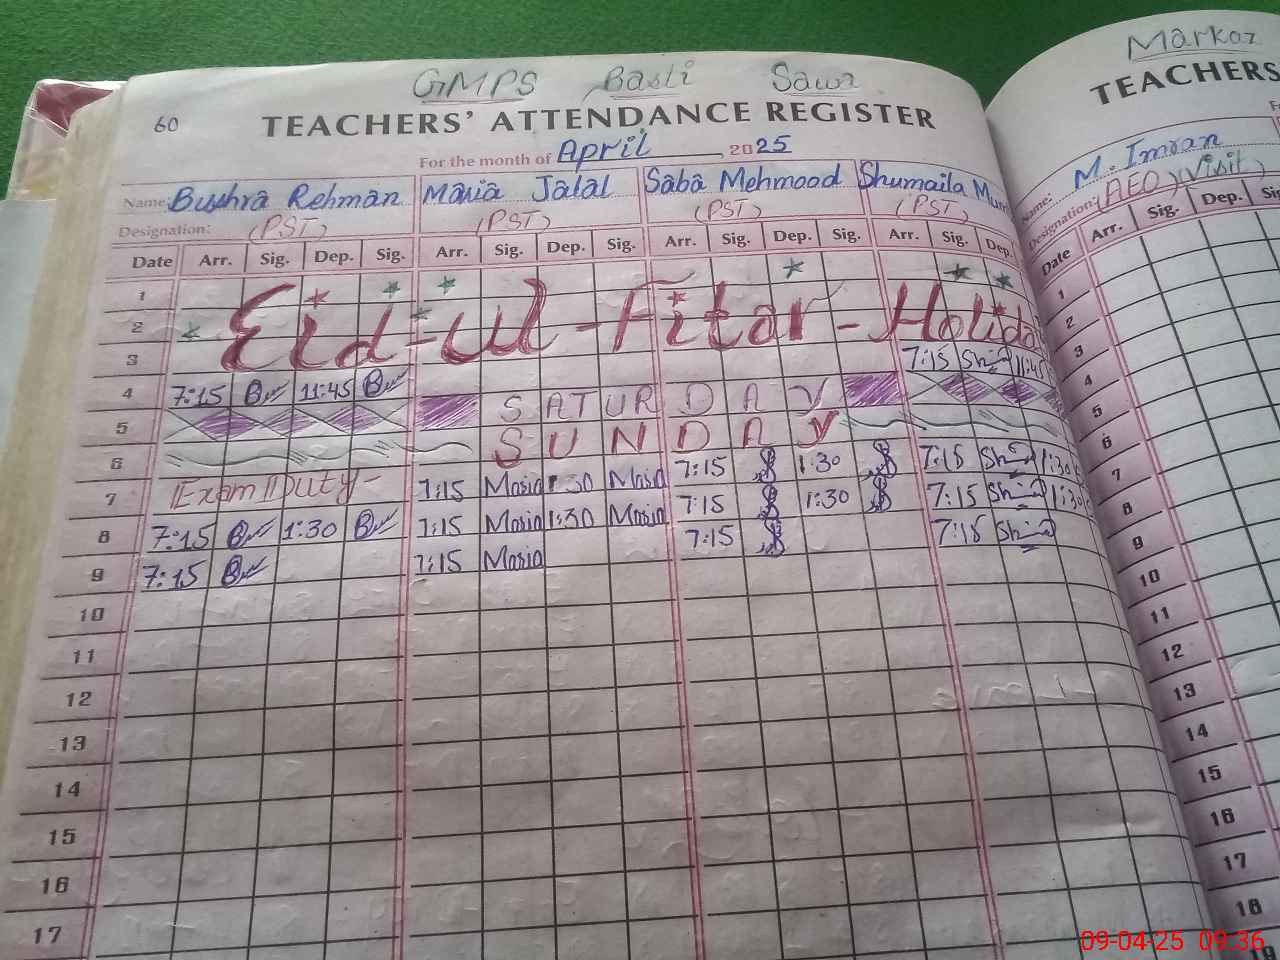 GMPS Basti Sawa
60 TEACHERS' ATTENDANCE REGISTER
For the month of April 2025
Name: Bushra Rehman Maria Jalal Saba Mehmood Shumaila
Designation: (PST) (PST) (PST) (PST)
Date Arr. Sig. Dep. Sig. Arr. Sig. Dep. Sig. Arr. Sig. Dep. Sig. Arr. Sig. Dep.
1
2 Eid-ul-Fitar-Holida
3
4 7:15 11:45 7:15 11:45
5 SATURDAY
6 SUNDAY
7 Exam Duty- 7:15 Maria 1:30 Maria 7:15 1:30 7:15 1:30
8 7:15 1:30 7:15 Maria 1:30 Maria 7:15 1:30 7:15 1:30
9 7:15 7:15 Maria 7:15 7:15
10
11
12
13
14
15
16
17
Markaz
TEACHERS
Name: M. Imran
Designation: (AEO) (Visit)
Date Arr. Sig. Dep.
1
2
3
4
5
6
7
8
9
10
11
12
13
14
15
16
17
18
19
09-04-25 09:36